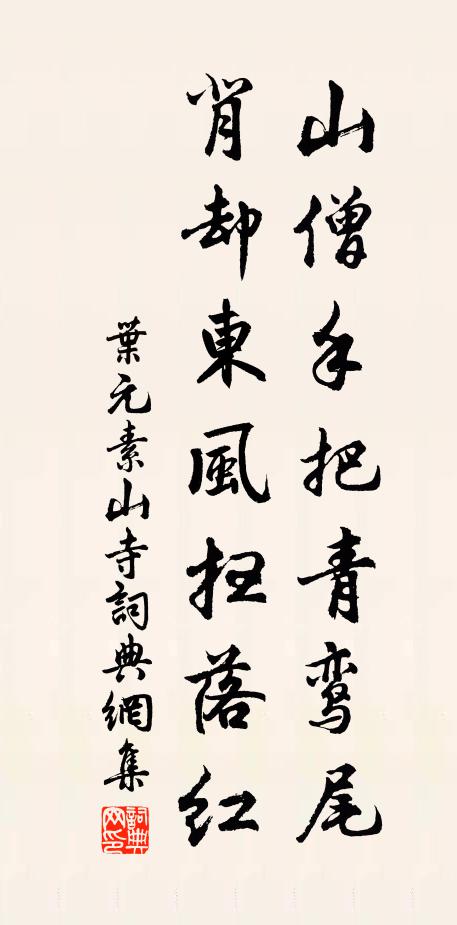 山僧手把青鸾尾
背却東風扫落红
葉元素山寺詞典網集
詞典網印